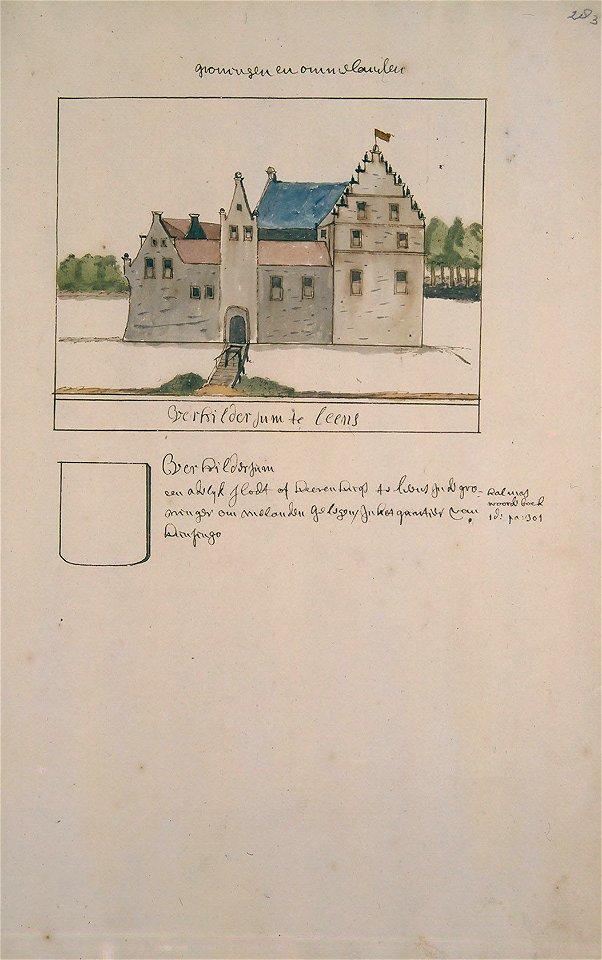 283
groningen en ommelanden
Verhildersum te leens
Verhildersum
een adelyk slodt of heerenhuis te leens in de gro-
ninger ommelanden gelegen, in het quartier van
hunsingo
halmas
woord boek
1d: pa: 301